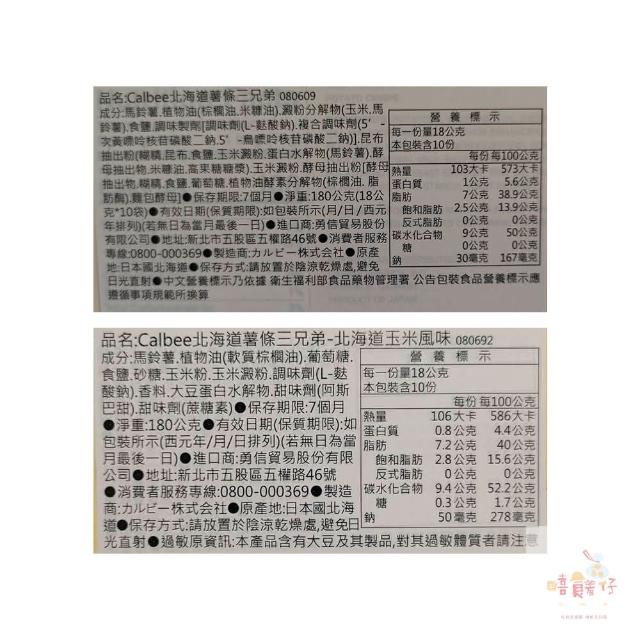 品名:Calbee北海道薯條三兄弟 080609
成分:馬鈴薯.植物油(棕櫚油.米糠油).澱粉分解物(玉米.馬
鈴薯).食鹽.調味製劑[調味劑(L-麩酸鈉).複合調味劑(5'-
次黃嘌呤核苷磷酸二鈉.5'-鳥嘌呤核苷磷酸二鈉)].昆布
抽出粉(糊精.昆布.食鹽.玉米澱粉.蛋白水解物(馬鈴薯).酵
母抽出物.米糠油.高果糖糖漿).玉米澱粉.酵母抽出粉[酵母
抽出物.糊精.食鹽.葡萄糖.植物油酵素分解物(棕櫚油.脂
肪酶).麵包酵母]●保存期限:7個月●淨重:180公克(18公
克*10袋)●有效日期(保質期限):如包裝所示(月/日/西元
年排列)(若無日為當月最後一日)●進口商:勇信貿易股份
有限公司●地址:新北市五股區五權路46號●消費者服務
專線:0800-000369●製造商:カルビー株式会社●原產
地:日本國北海道●保存方式:請放置於陰涼乾燥處,避免
日光直射●中文營養標示乃依據 衛生福利部食品藥物管理署 公告包裝食品營養標示應
遵循事項規範所換算
營養標示
每一份量18公克
本包裝含10份
每份 每100公克
熱量 103大卡 573大卡
蛋白質 1公克 5.6公克
脂肪 7公克 38.9公克
飽和脂肪 2.5公克 13.9公克
反式脂肪 0公克 0公克
碳水化合物 9公克 50公克
糖 0公克 0公克
鈉 30毫克 167毫克
品名:Calbee北海道薯條三兄弟-北海道玉米風味 080692
成分:馬鈴薯.植物油(軟質棕櫚油).葡萄糖.
食鹽.砂糖.玉米粉.玉米澱粉.調味劑(L-麩
酸鈉).香料.大豆蛋白水解物.甜味劑(阿斯
巴甜).甜味劑(蔗糖素)●保存期限:7個月
●淨重:180公克●有效日期(保質期限):如
包裝所示(西元年/月/日排列)(若無日為當
月最後一日)●進口商:勇信貿易股份有限
公司●地址:新北市五股區五權路46號
●消費者服務專線:0800-000369●製造
商:カルビー株式会社●原產地:日本國北海
道●保存方式:請放置於陰涼乾燥處,避免日
光直射●過敏原資訊:本產品含有大豆及其製品,對其過敏體質者請注意
營養標示
每一份量18公克
本包裝含10份
每份 每100公克
熱量 106大卡 586大卡
蛋白質 0.8公克 4.4公克
脂肪 7.2公克 40公克
飽和脂肪 2.8公克 15.6公克
反式脂肪 0公克 0公克
碳水化合物 9.4公克 52.2公克
糖 0.3公克 1.7公克
鈉 50毫克 278毫克